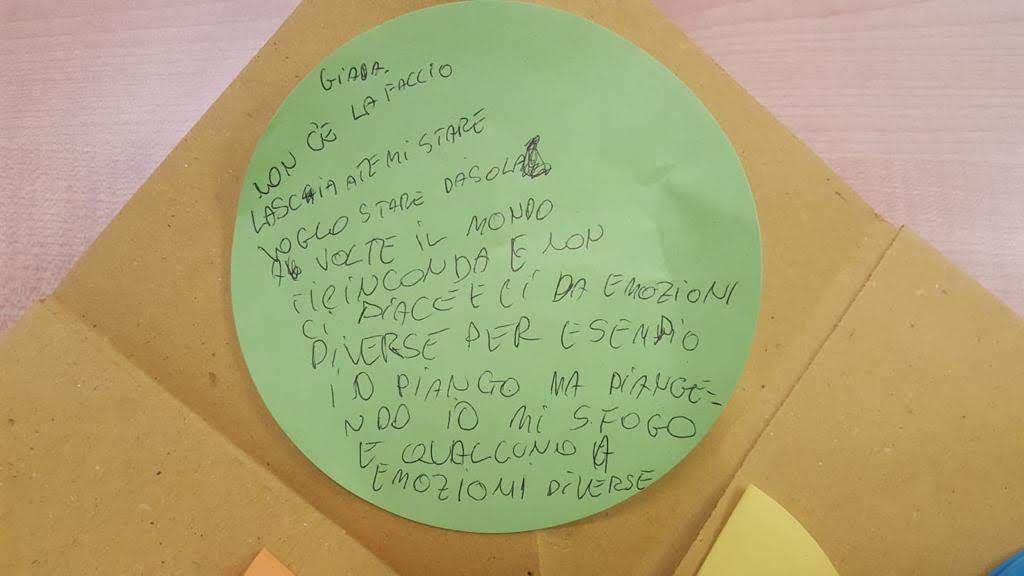 GIADA
NON CE LA FACCIO
LASCIATEMI STARE
VOGLO STARE DA SOLA
A VOLTE IL MONDO
TI RINCONDA E NON
CI PIACE E CI DA EMOZIONI
DIVERSE PER ESEMPIO
IO PIANGO MA PIANGE-
NDO IO MI SFOGO
E QUALCUNO A
EMOZIONI DIVERSE